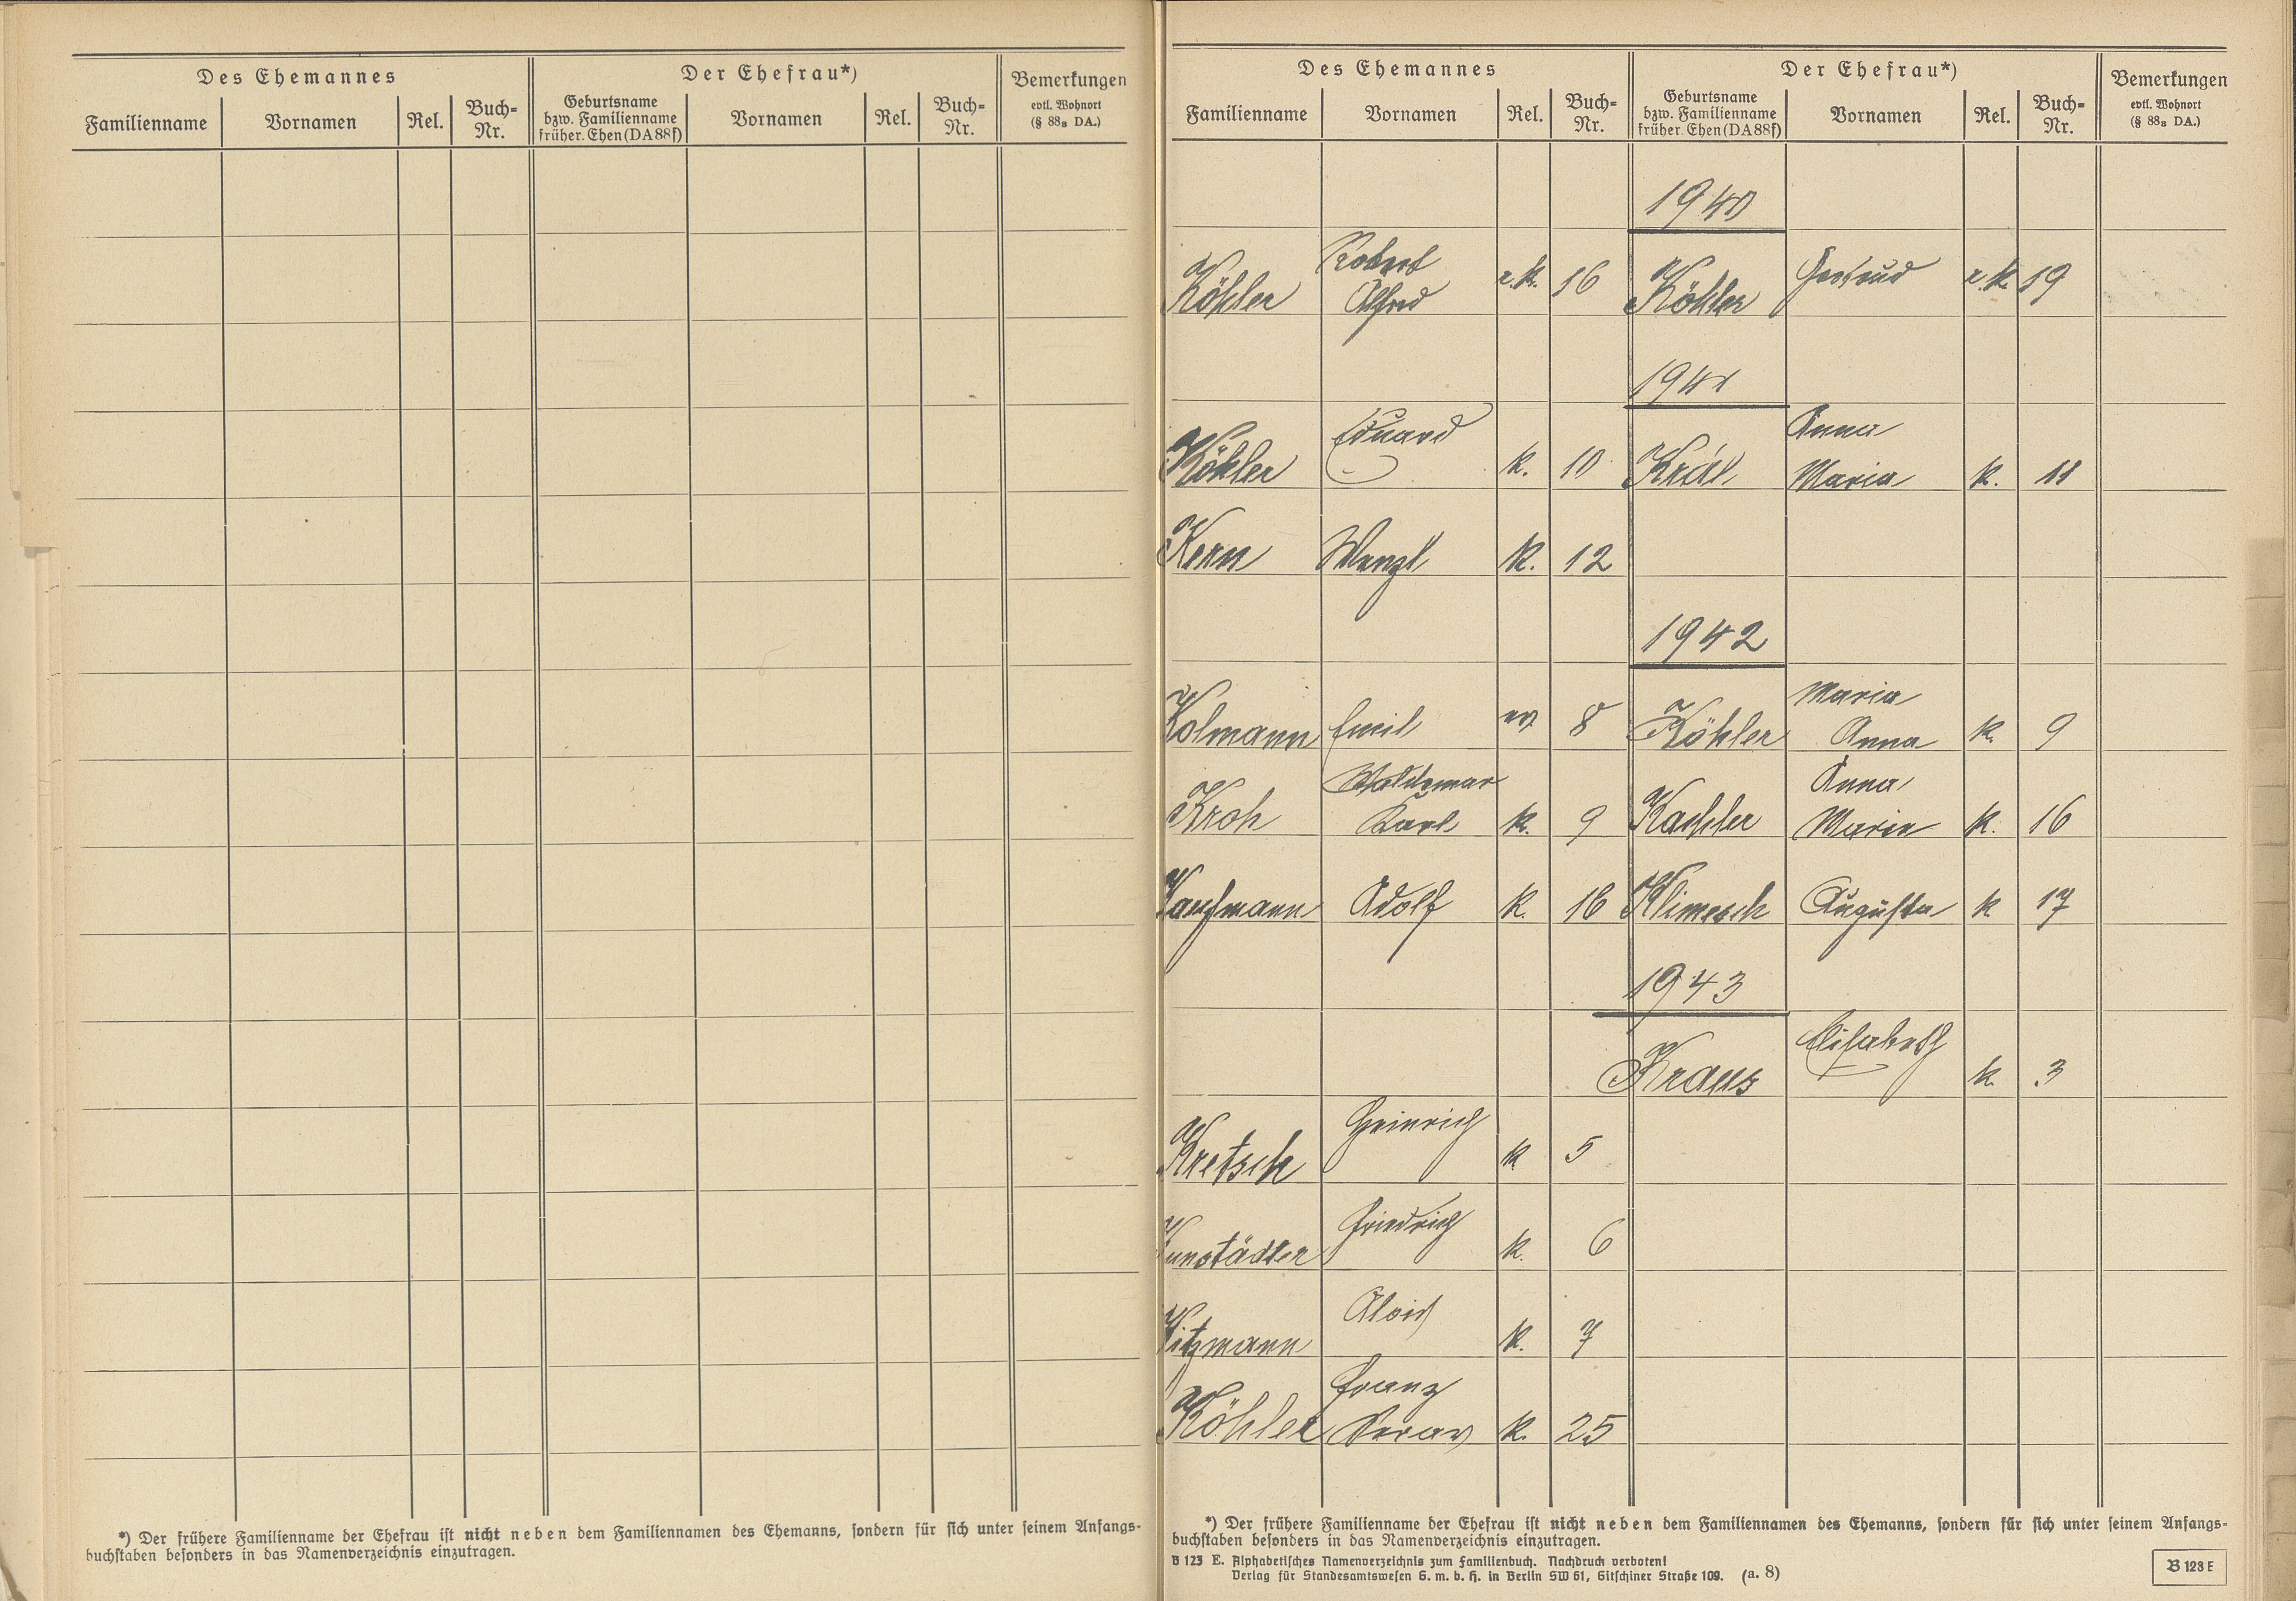 Des Ehemannes
Der Ehefrau*)
Bemerkungen
evtl. Wohnort
(§ 88₈ DA.)
Familienname
Vornamen
Rel.
Buch-
Nr.
Geburtsname
bzw. Familienname
früher. Ehen (DA 88f)
Vornamen
Rel.
Buch-
Nr.
*) Der frühere Familienname der Ehefrau ist nicht neben dem Familiennamen des Ehemanns, sondern für sich unter seinem Anfangs-
buchstaben besonders in das Namenverzeichnis einzutragen.
Des Ehemannes
Der Ehefrau*)
Bemerkungen
evtl. Wohnort
(§ 88₈ DA.)
Familienname
Vornamen
Rel.
Buch-
Nr.
Geburtsname
bzw. Familienname
früher. Ehen (DA 88f)
Vornamen
Rel.
Buch-
Nr.
1940
Robert
Köhler Alfred r.k. 16 Köhler Gertrud r.k. 19
1941
Eduard Anna
Köhler k. 10 Král Maria k. 11
Kern Wenzl k. 12
1942
Maria
Kolmann Emil ev. 8 Köhler Anna k. 9
Waldemar Anna
Kroh Karl k. 9 Kachler Maria k. 16
Kaufmann Adolf k. 16 Klimesch Augusta k. 17
1943
Elisabeth
Kraus k. 3
Heinrich
Kretsch k 5
Friedrich
Kunstädter k. 6
Alois
Kitzmann k. 7
Franz
Köhler k. 25
*) Der frühere Familienname der Ehefrau ist nicht neben dem Familiennamen des Ehemanns, sondern für sich unter seinem Anfangs-
buchstaben besonders in das Namenverzeichnis einzutragen.
B 123 E. Alphabetisches Namenverzeichnis zum Familienbuch. Nachdruck verboten!
Verlag für Standesamtswesen G. m. b. H. in Berlin SW 61, Gitschiner Straße 109. (a. 8)
B 123 E